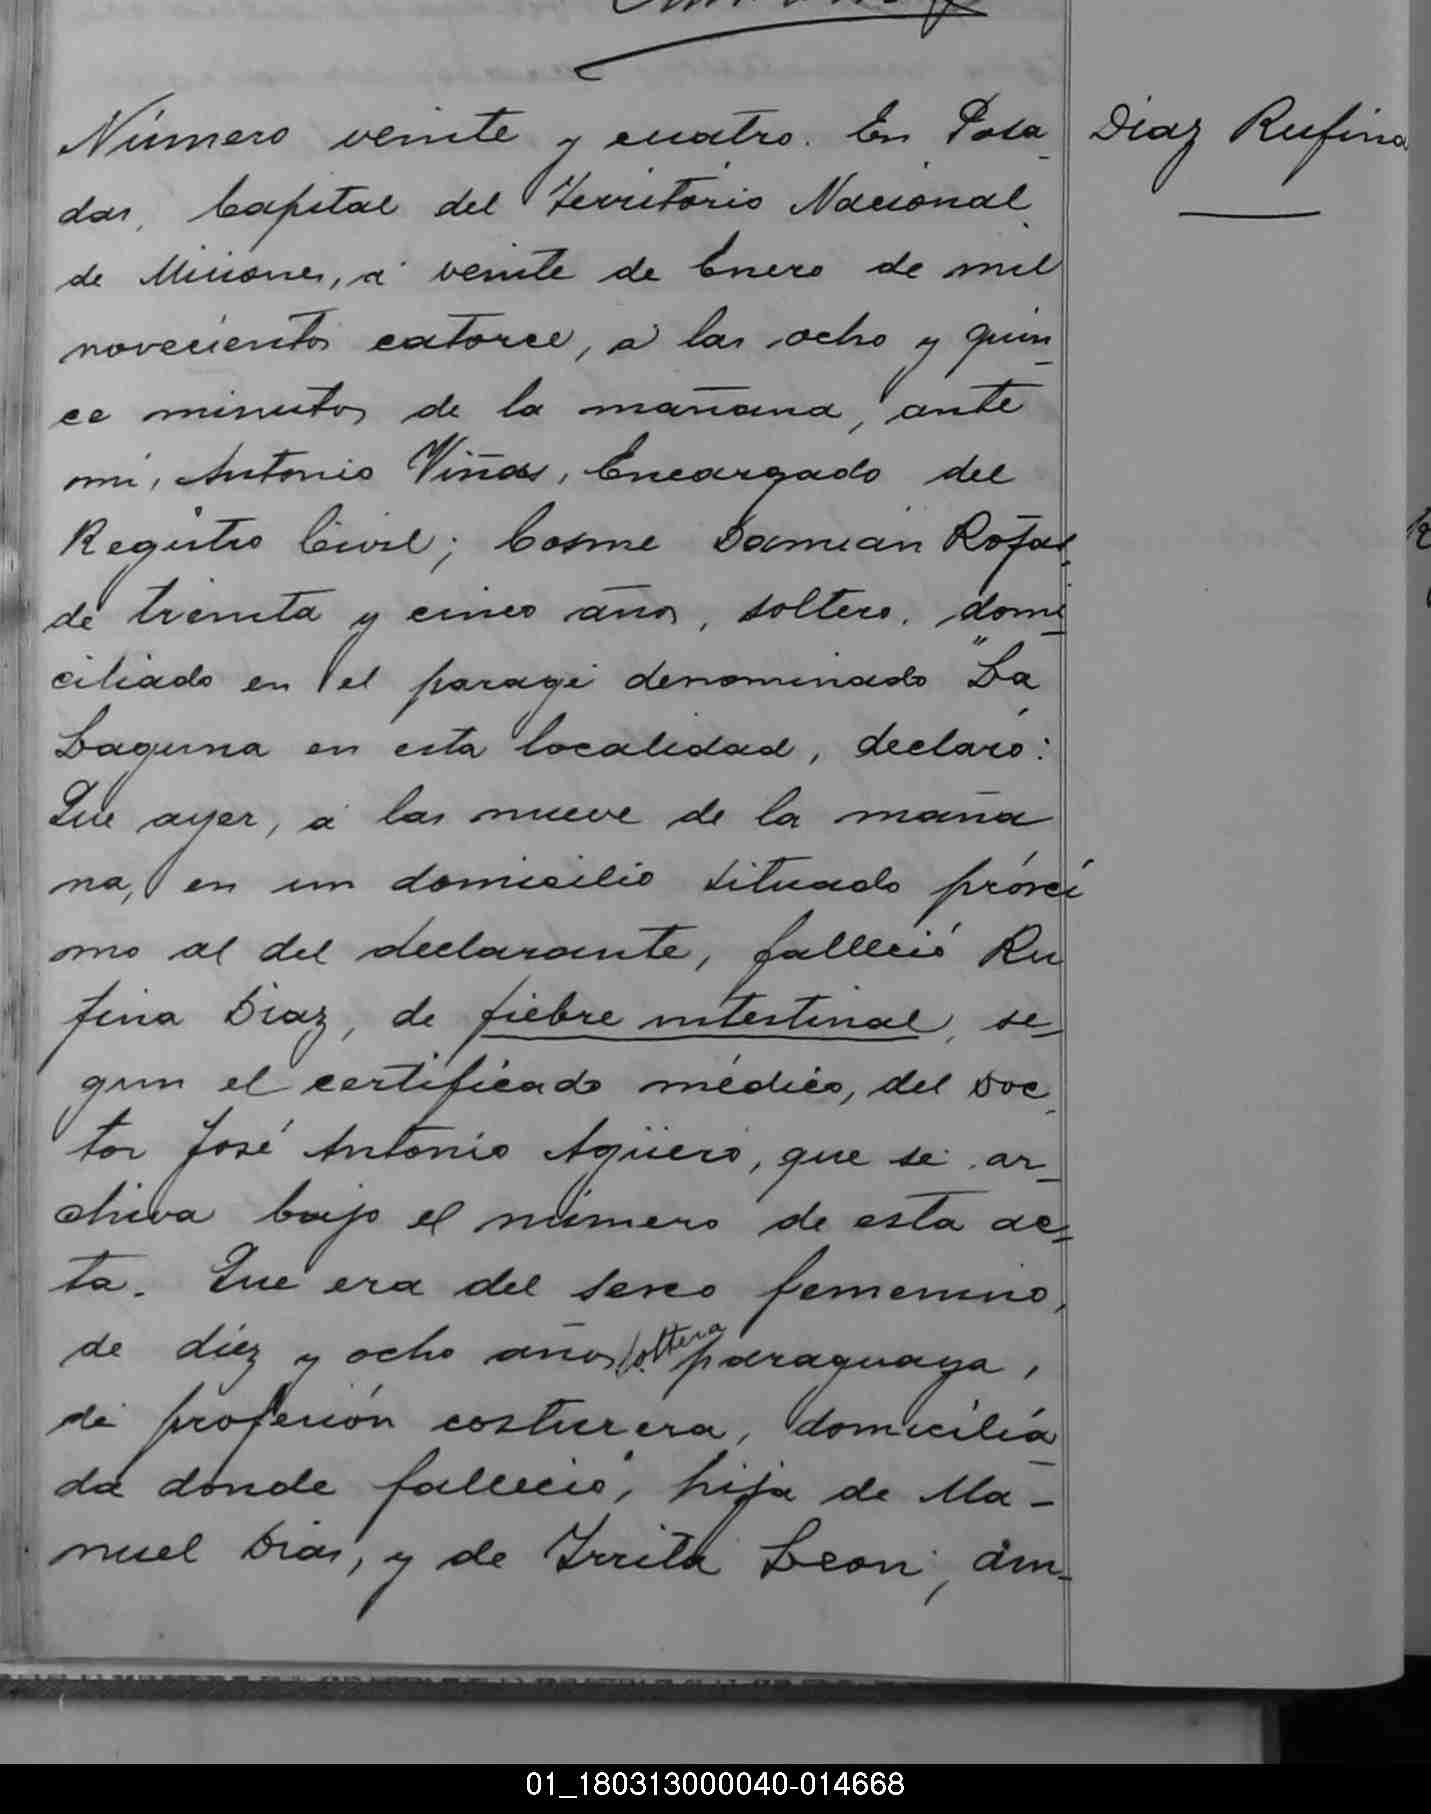 Número veinte y cuatro. En Posa
Diaz Rufina
das, Capital del Territorio Nacional
de Misiones, á veinte de Enero de mil
novecientos catorce, á las ocho y quin
ce minutos de la mañana, ante
mi, Antonio Viñas, Encargado del
Registro Civil; Cosme Damián Rojas
de treinta y cinco años, soltero, domi
ciliado en el parage denominado "La
Laguna en esta localidad, declaró:
Que ayer, á las nueve de la maña
na, en un domicilio situado prócsi
mo al del declarante, falleció Ru
fina Diaz, de fiebre intestinal, se
gun el certificado médico, del Doc
tor José Antonio Agüero, que se ar
chiva bajo el número de esta ac
ta. Que era del secso femenino,
de diez y ocho años, soltera paraguaya,
de profesión costurera, domicilia
da donde falleció, hija de Ma-
nuel Dias, y de Irrita Leon, am-
01_180313000040-014668